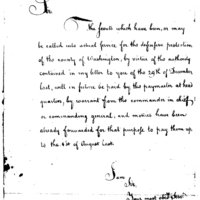 Sir
The scouts which have been, or may
be called into actual service for the defensive protection
of the county of Washington, by virtue of the authority
contained in my letter to you of the 29th of December
last, will in future be paid by the paymaster at head
quarters, by warrant from the commander in chief,
or commanding general, and monies have been
already forwarded for that purpose to pay them up
to the 1st of August last.
I am
Sir,
Your most obed. Serv.